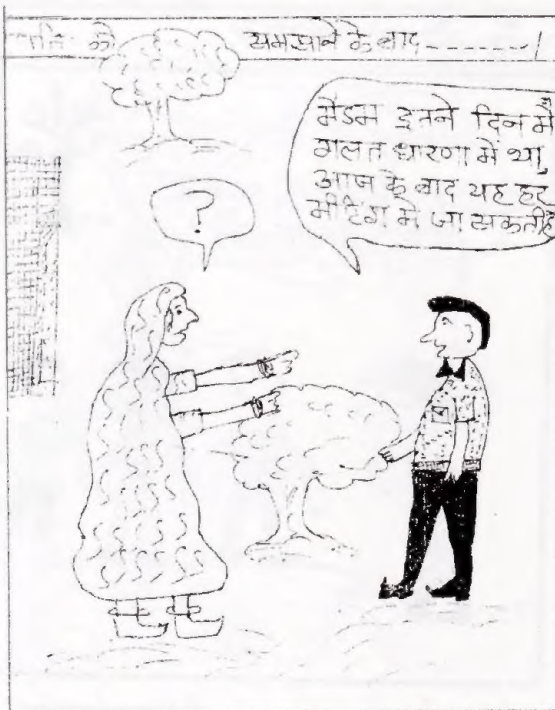 पति को समझाने के बाद-------।
?
मैडम इतने दिन मैं
गलत धारणा में था,
आज के बाद यह हर
मीटिंग मे जा सकती है